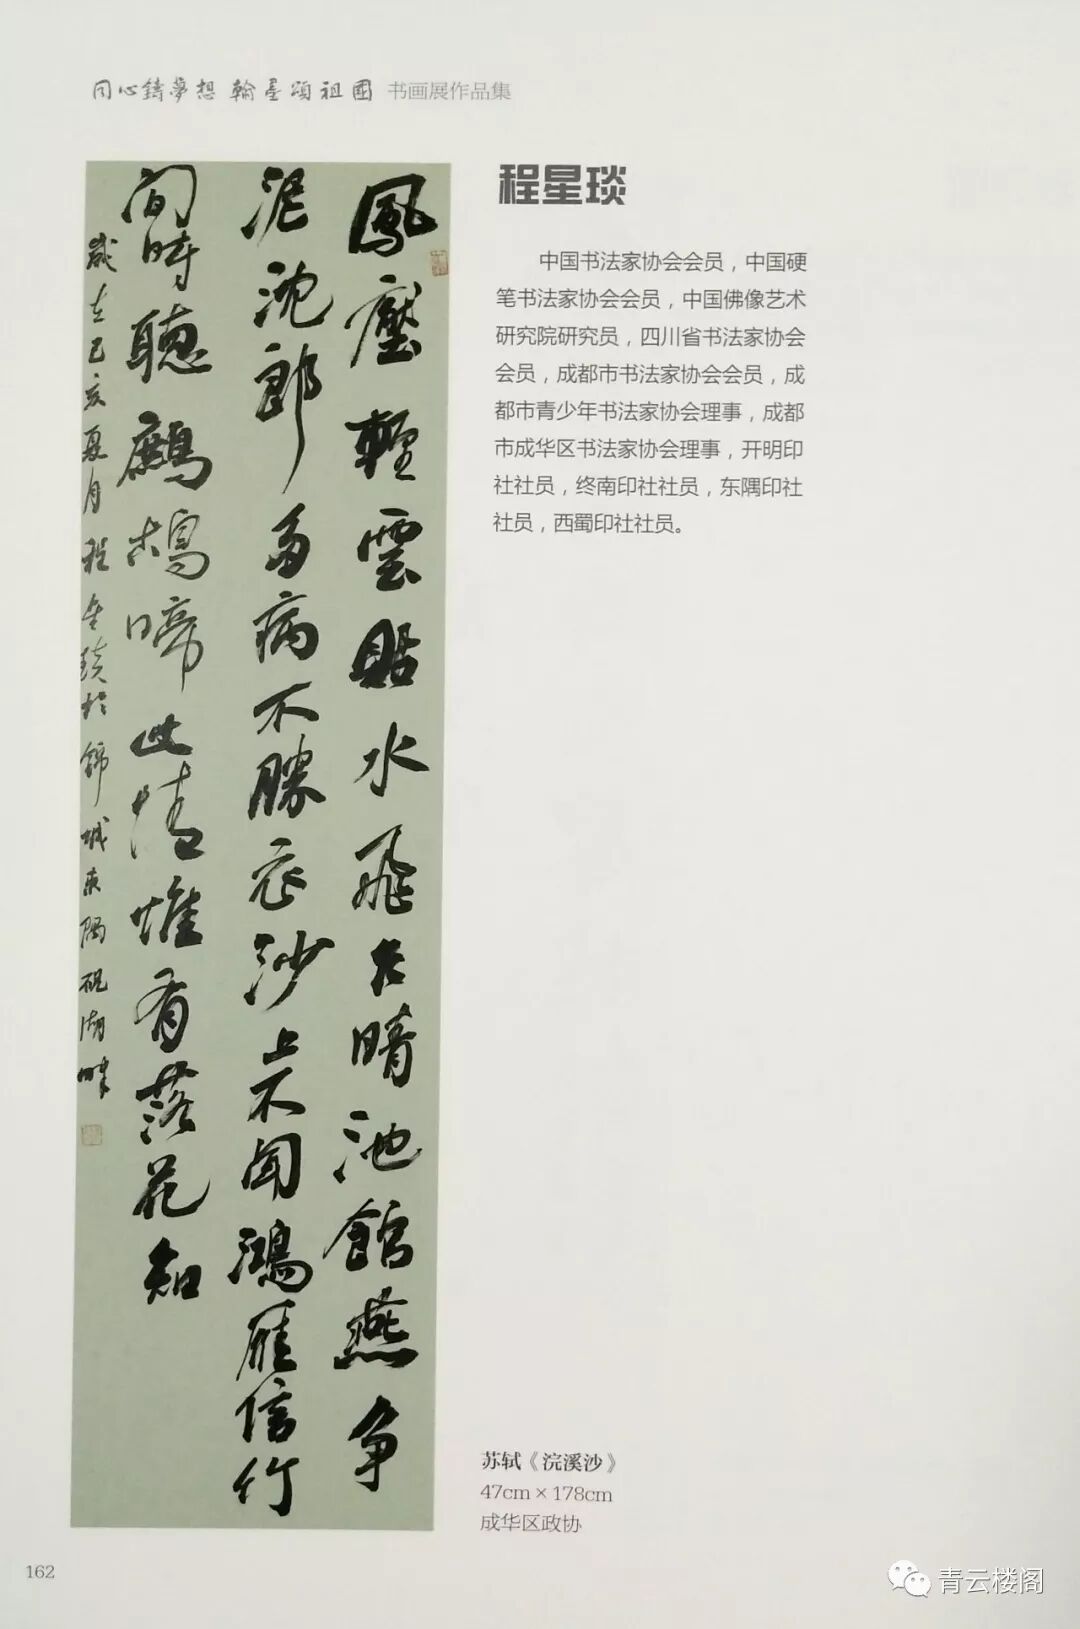 同心鑄夢想 翰墨頌祖國 书画展作品集
程星琰
中国书法家协会会员，中国硬
笔书法家协会会员，中国佛像艺术
研究院研究员，四川省书法家协会
会员，成都市书法家协会会员，成
都市青少年书法家协会理事，成都
市成华区书法家协会理事，开明印
社社员，终南印社社员，东隅印社
社员，西蜀印社社员。
風壓輕雲貼水飛乍晴池館燕争
泥沈郎多病不勝衣沙上不闻鴻雁信竹
间時聽鷓鴣啼此情惟有落花知
歲在己亥夏月程星琰於錦城東隅砚湖畔
苏轼《浣溪沙》
47cm×178cm
成华区政协
162
青云楼阁